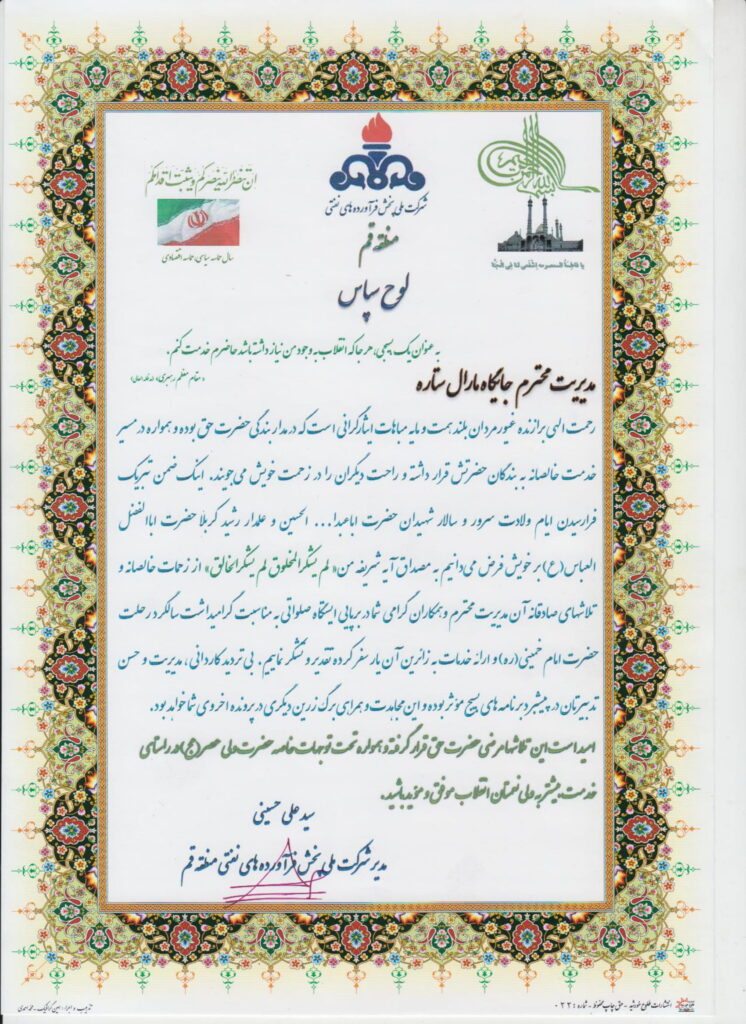 بسم الله الرحمن الرحیم
ان تنصرالله ینصرکم و یثبت اقدامکم
شرکت ملی پخش فرآورده های نفتی
یا فاطمة المعصومه إشفعی لنا فی الجنة
سال حماسه سیاسی، حماسه اقتصادی
منطقه قم
لوح سپاس
به عنوان یک بسیجی، هر جا که انقلاب به وجود من نیاز داشته باشد حاضرم خدمت کنم.
«مقام معظم رهبری(مدظله العالی)»
مدیریت محترم جایگاه مارال ستاره
رحمت الهی برازنده غیور مردان بلند همت و مایه مباهات ایثارگرانی است که در مدار بندگی حضرت حق بوده و همواره در مسیر
خدمت خالصانه به بندگان حضرتش قرار داشته و راحت دیگران را در زحمت خویش می جویند. اینک ضمن تبریک
فرارسیدن ایام ولادت سرور و سالار شهیدان حضرت اباعبدا... الحسین و علمدار رشید کربلا حضرت اباالفضل
العباس(ع) بر خویش فرض می دانیم به مصداق آیه شریفه من «لم یشکر المخلوق لم یشکر الخالق» از زحمات خالصانه و
تلاشهای صادقانه آن مدیریت محترم و همکاران گرامی شما در برپایی ایستگاه صلواتی به مناسبت گرامیداشت سالگرد رحلت
حضرت امام خمینی(ره) و ارائه خدمات به زائرین آن یار سفر کرده تقدیر و تشکر نماییم. بی تردید کاردانی، مدیریت و حسن
تدبیرتان در پیشبرد برنامه های بسیج مؤثر بوده و این مجاهدت و همراهی برگ زرین دیگری در پرونده اخروی شما خواهد بود.
امید است این تلاشها مرضی حضرت حق قرار گرفته و همواره تحت توجهات خاصه حضرت ولی عصر(عج) در راستای
خدمت بیشتر به ولی نعمتان انقلاب موفق و مؤید باشید.
سید علی حسینی
مدیر شرکت ملی پخش فرآورده های نفتی منطقه قم
انتشارات طلوع خورشید - حق چاپ محفوظ - شماره : ۰۲۲
تذهیب و اجرا :